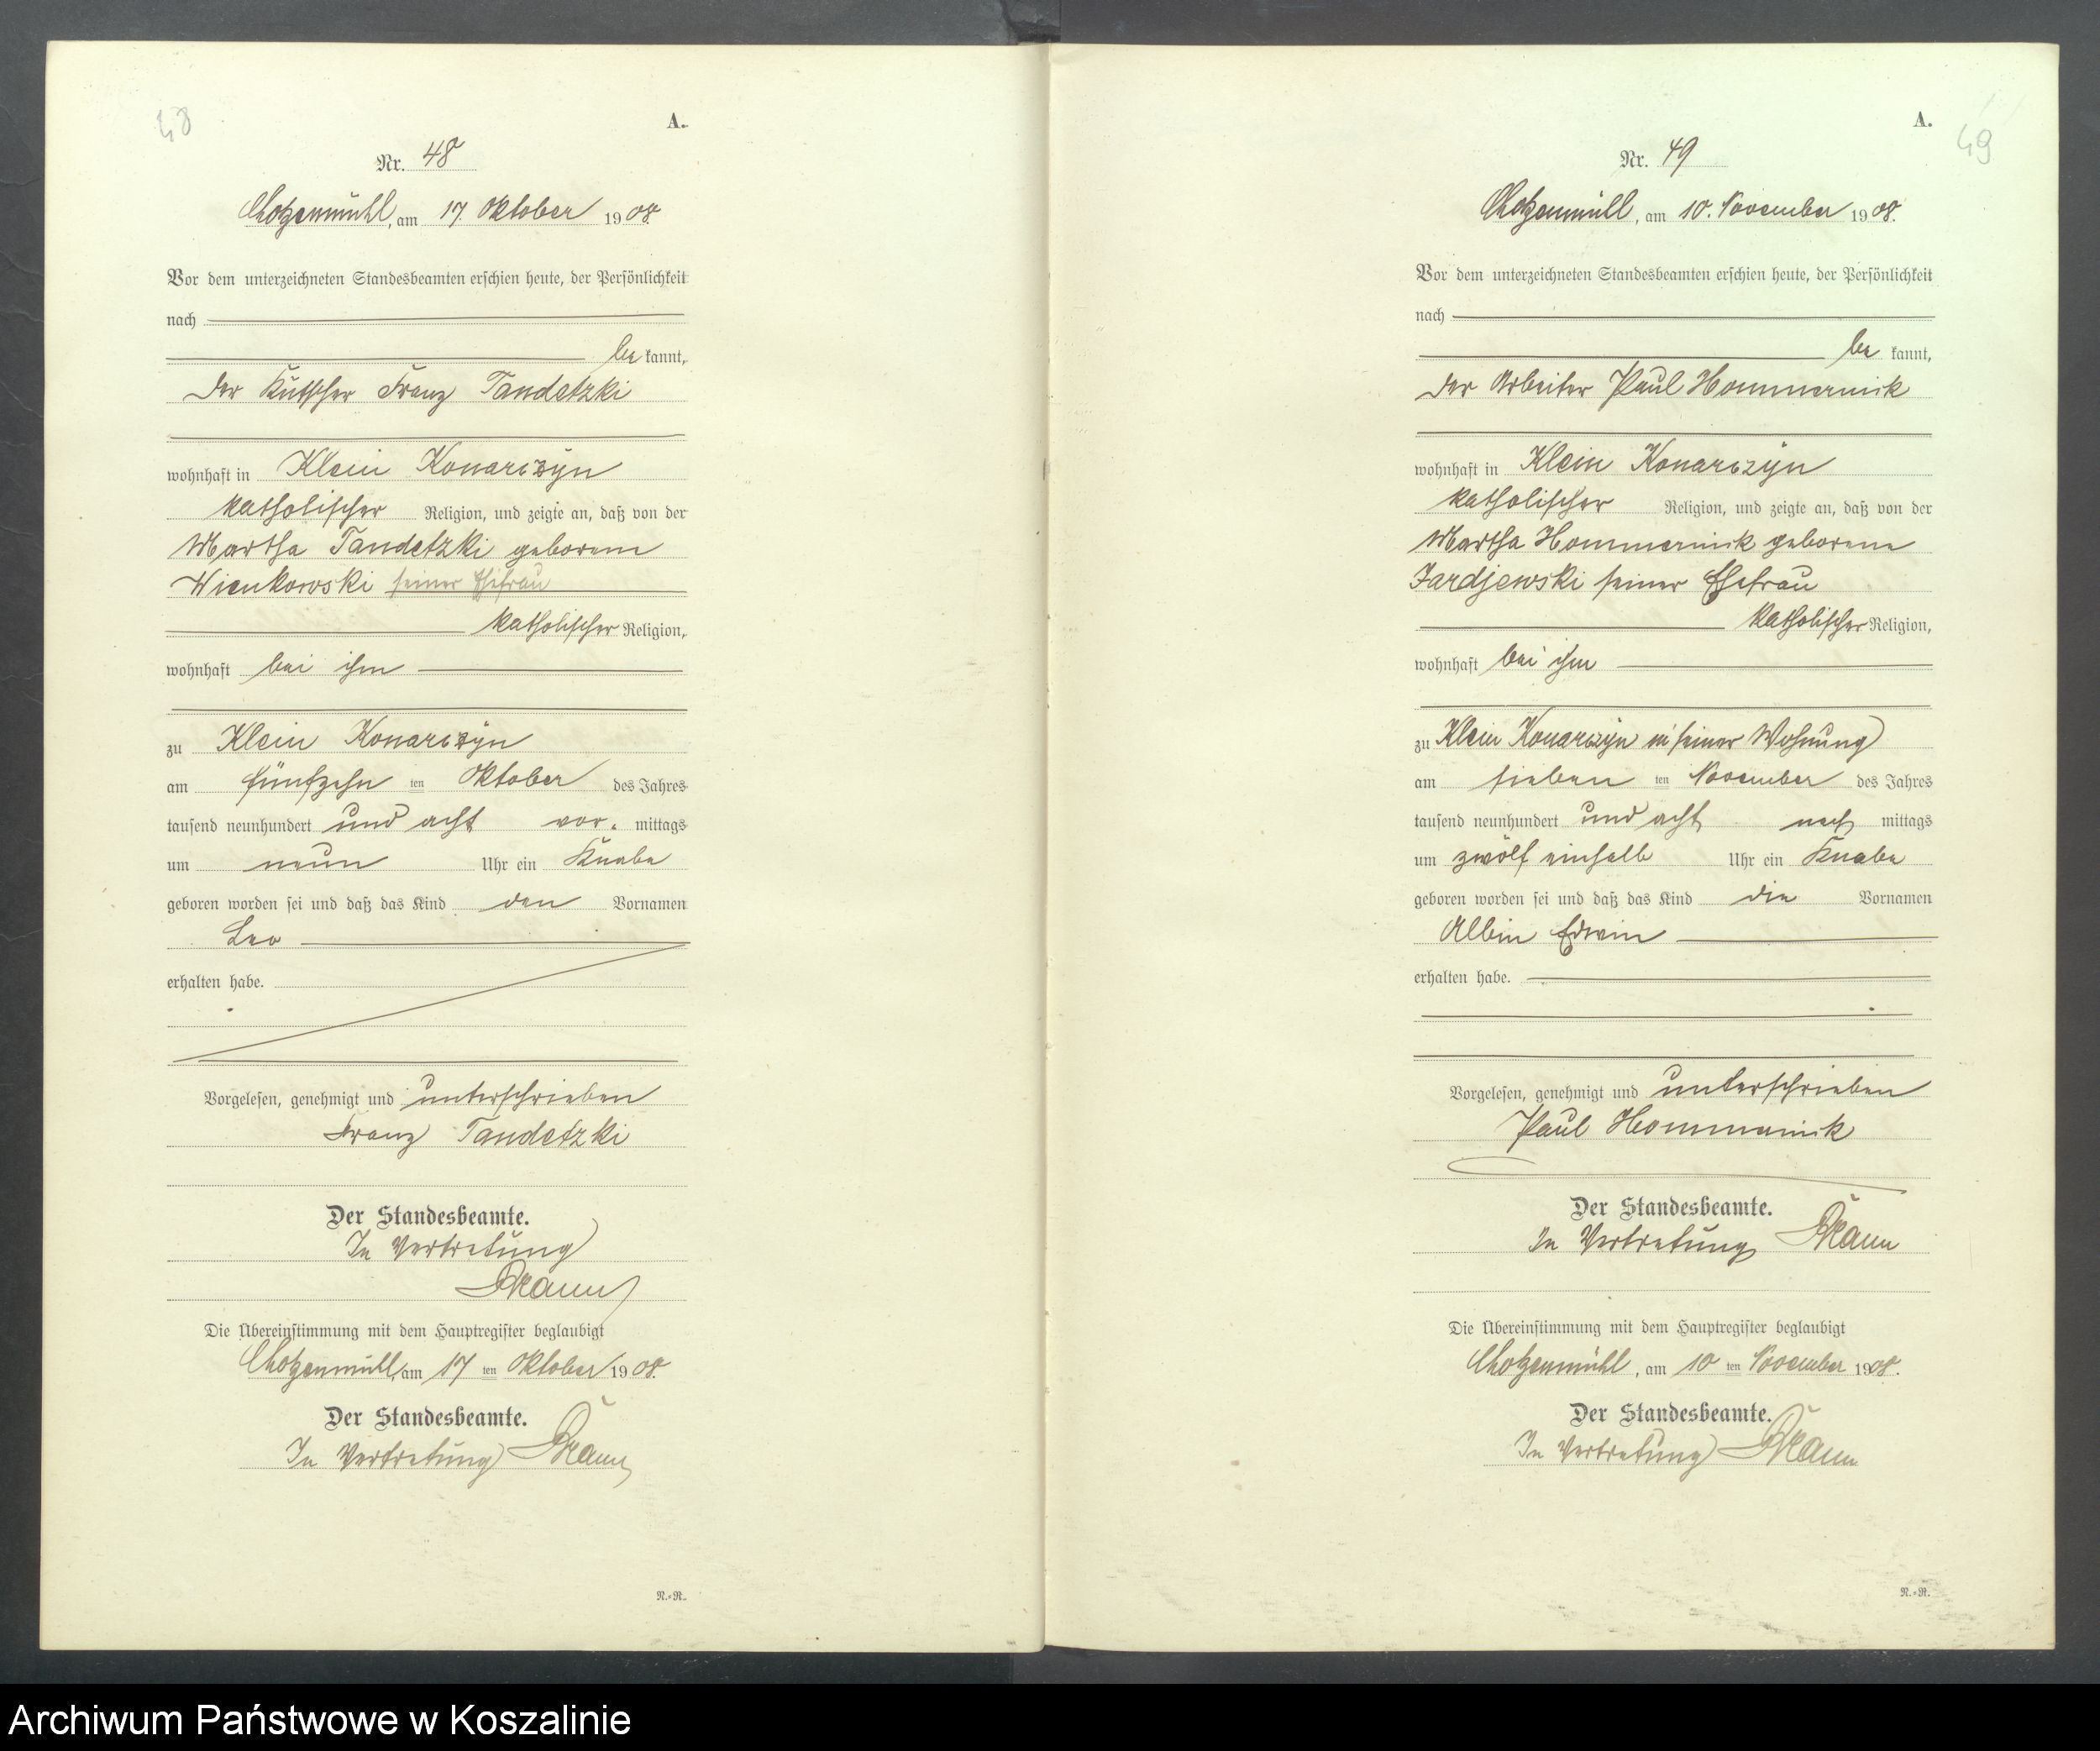 48
A.
Nr. 48
Chotzenmühl, am 17. Oktober 1908.
Vor dem unterzeichneten Standesbeamten erschien heute, der Persönlichkeit
nach
be kannt,
der Kutscher Franz Tandetzki
wohnhaft in Klein Konarczyn
katholischer Religion, und zeigte an, daß von der
Martha Tandetzki geborene
Wienkowski seiner Ehefrau
katholischer Religion,
wohnhaft bei ihm
zu Klein Konarczyn
am fünfzehn ten Oktober des Jahres
tausend neunhundert und acht vor- mittags
um neun Uhr ein Knabe
geboren worden sei und daß das Kind den Vornamen
Leo
erhalten habe.
Vorgelesen, genehmigt und unterschrieben
Franz Tandetzki
Der Standesbeamte.
In Vertretung
Die Übereinstimmung mit dem Hauptregister beglaubigt
Chotzenmühl, am 17 ten Oktober 1908.
Der Standesbeamte.
In Vertretung
N.=R.
A.
49
Nr. 49
Chotzenmühl, am 10. November 1908.
Vor dem unterzeichneten Standesbeamten erschien heute, der Persönlichkeit
nach
be kannt,
der Arbeiter Paul Hommernik
wohnhaft in Klein Konarczyn
katholischer Religion, und zeigte an, daß von der
Martha Hommernik geborene
Jardjewski seiner Ehefrau
katholischer Religion,
wohnhaft bei ihm
zu Klein Konarczyn in seiner Wohnung
am sieben ten November des Jahres
tausend neunhundert und acht nach mittags
um zwölf einhalb Uhr ein Knabe
geboren worden sei und daß das Kind die Vornamen
Albin Edwin
erhalten habe.
Vorgelesen, genehmigt und unterschrieben
Paul Hommernik
Der Standesbeamte.
In Vertretung
Die Übereinstimmung mit dem Hauptregister beglaubigt
Chotzenmühl, am 10 ten November 1908.
Der Standesbeamte.
In Vertretung
N.=R.
Archiwum Państwowe w Koszalinie